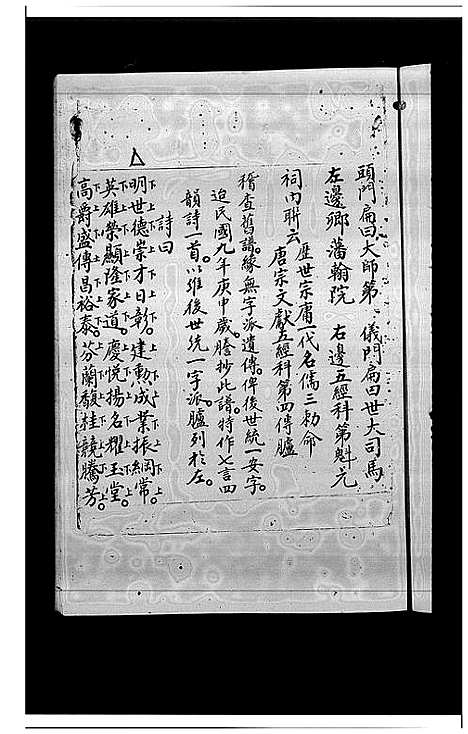 頭門扁曰大師第 儀門扁曰四世大司馬
左邊卿藩翰院 右邊五經科第魁元
祠內聯云 歷世宗庸一代名儒三勅命
唐宗文獻五經科第四傳臚
稽查舊譜緣無字派遺傳俾後世統一安字
迨民國九年庚申歲謄抄此譜特作七言四
韻詩一首以維後世統一字派臚列於左
詩曰
明世德崇才日彰 建勲成業振綱常
英雄榮顯隆家道 慶悅揚名耀玉堂
高爵盛傳昌裕泰 芬蘭馥桂競騰芳